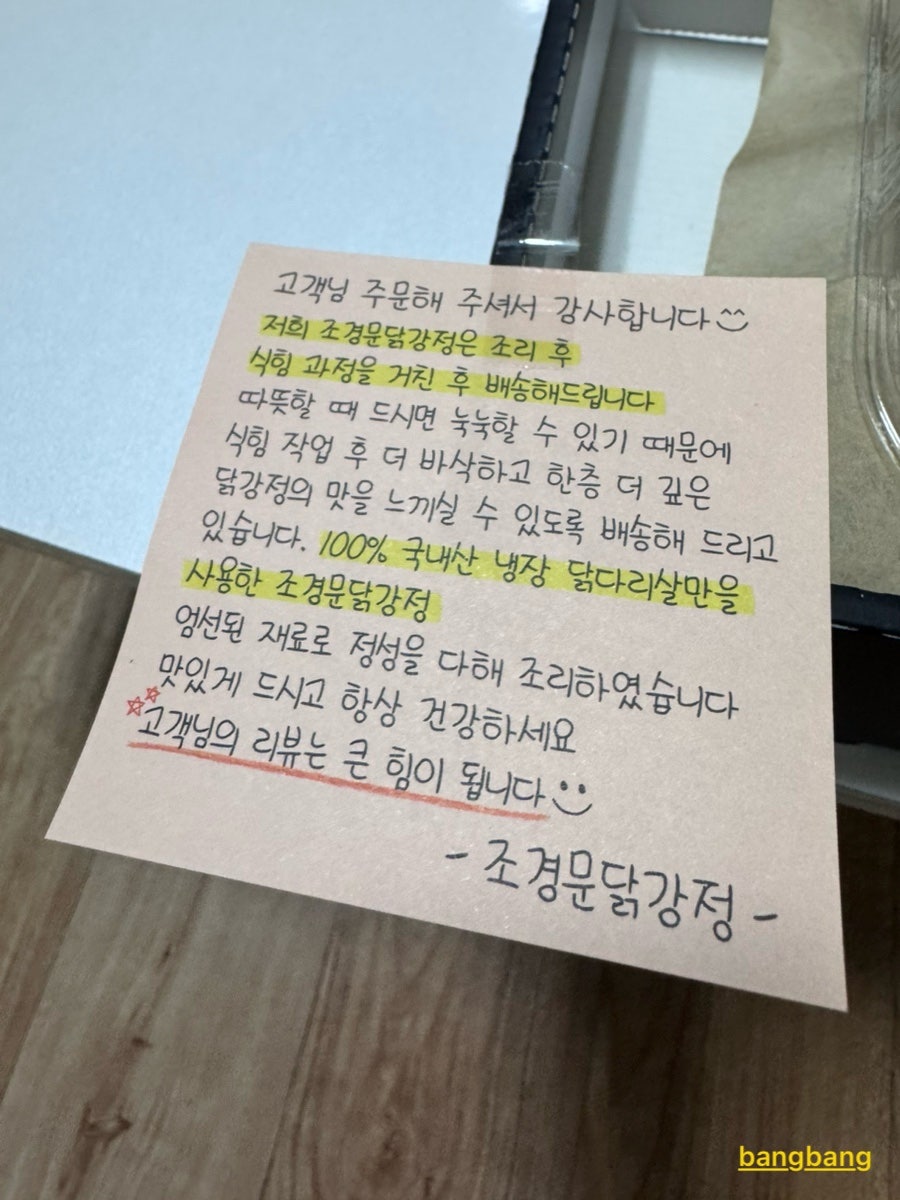 고객님 주문해 주셔서 감사합니다^^
저희 조경문닭강정은 조리 후
식힘 과정을 거친 후 배송해드립니다
따뜻할 때 드시면 눅눅할 수 있기 때문에
식힘 작업 후 더 바삭하고 한층 더 깊은
닭강정의 맛을 느끼실 수 있도록 배송해 드리고
있습니다. 100% 국내산 냉장 닭다리살만을
사용한 조경문닭강정
엄선된 재료로 정성을 다해 조리하였습니다
맛있게 드시고 항상 건강하세요
☆☆고객님의 리뷰는 큰 힘이 됩니다
- 조경문닭강정 -
bangbang